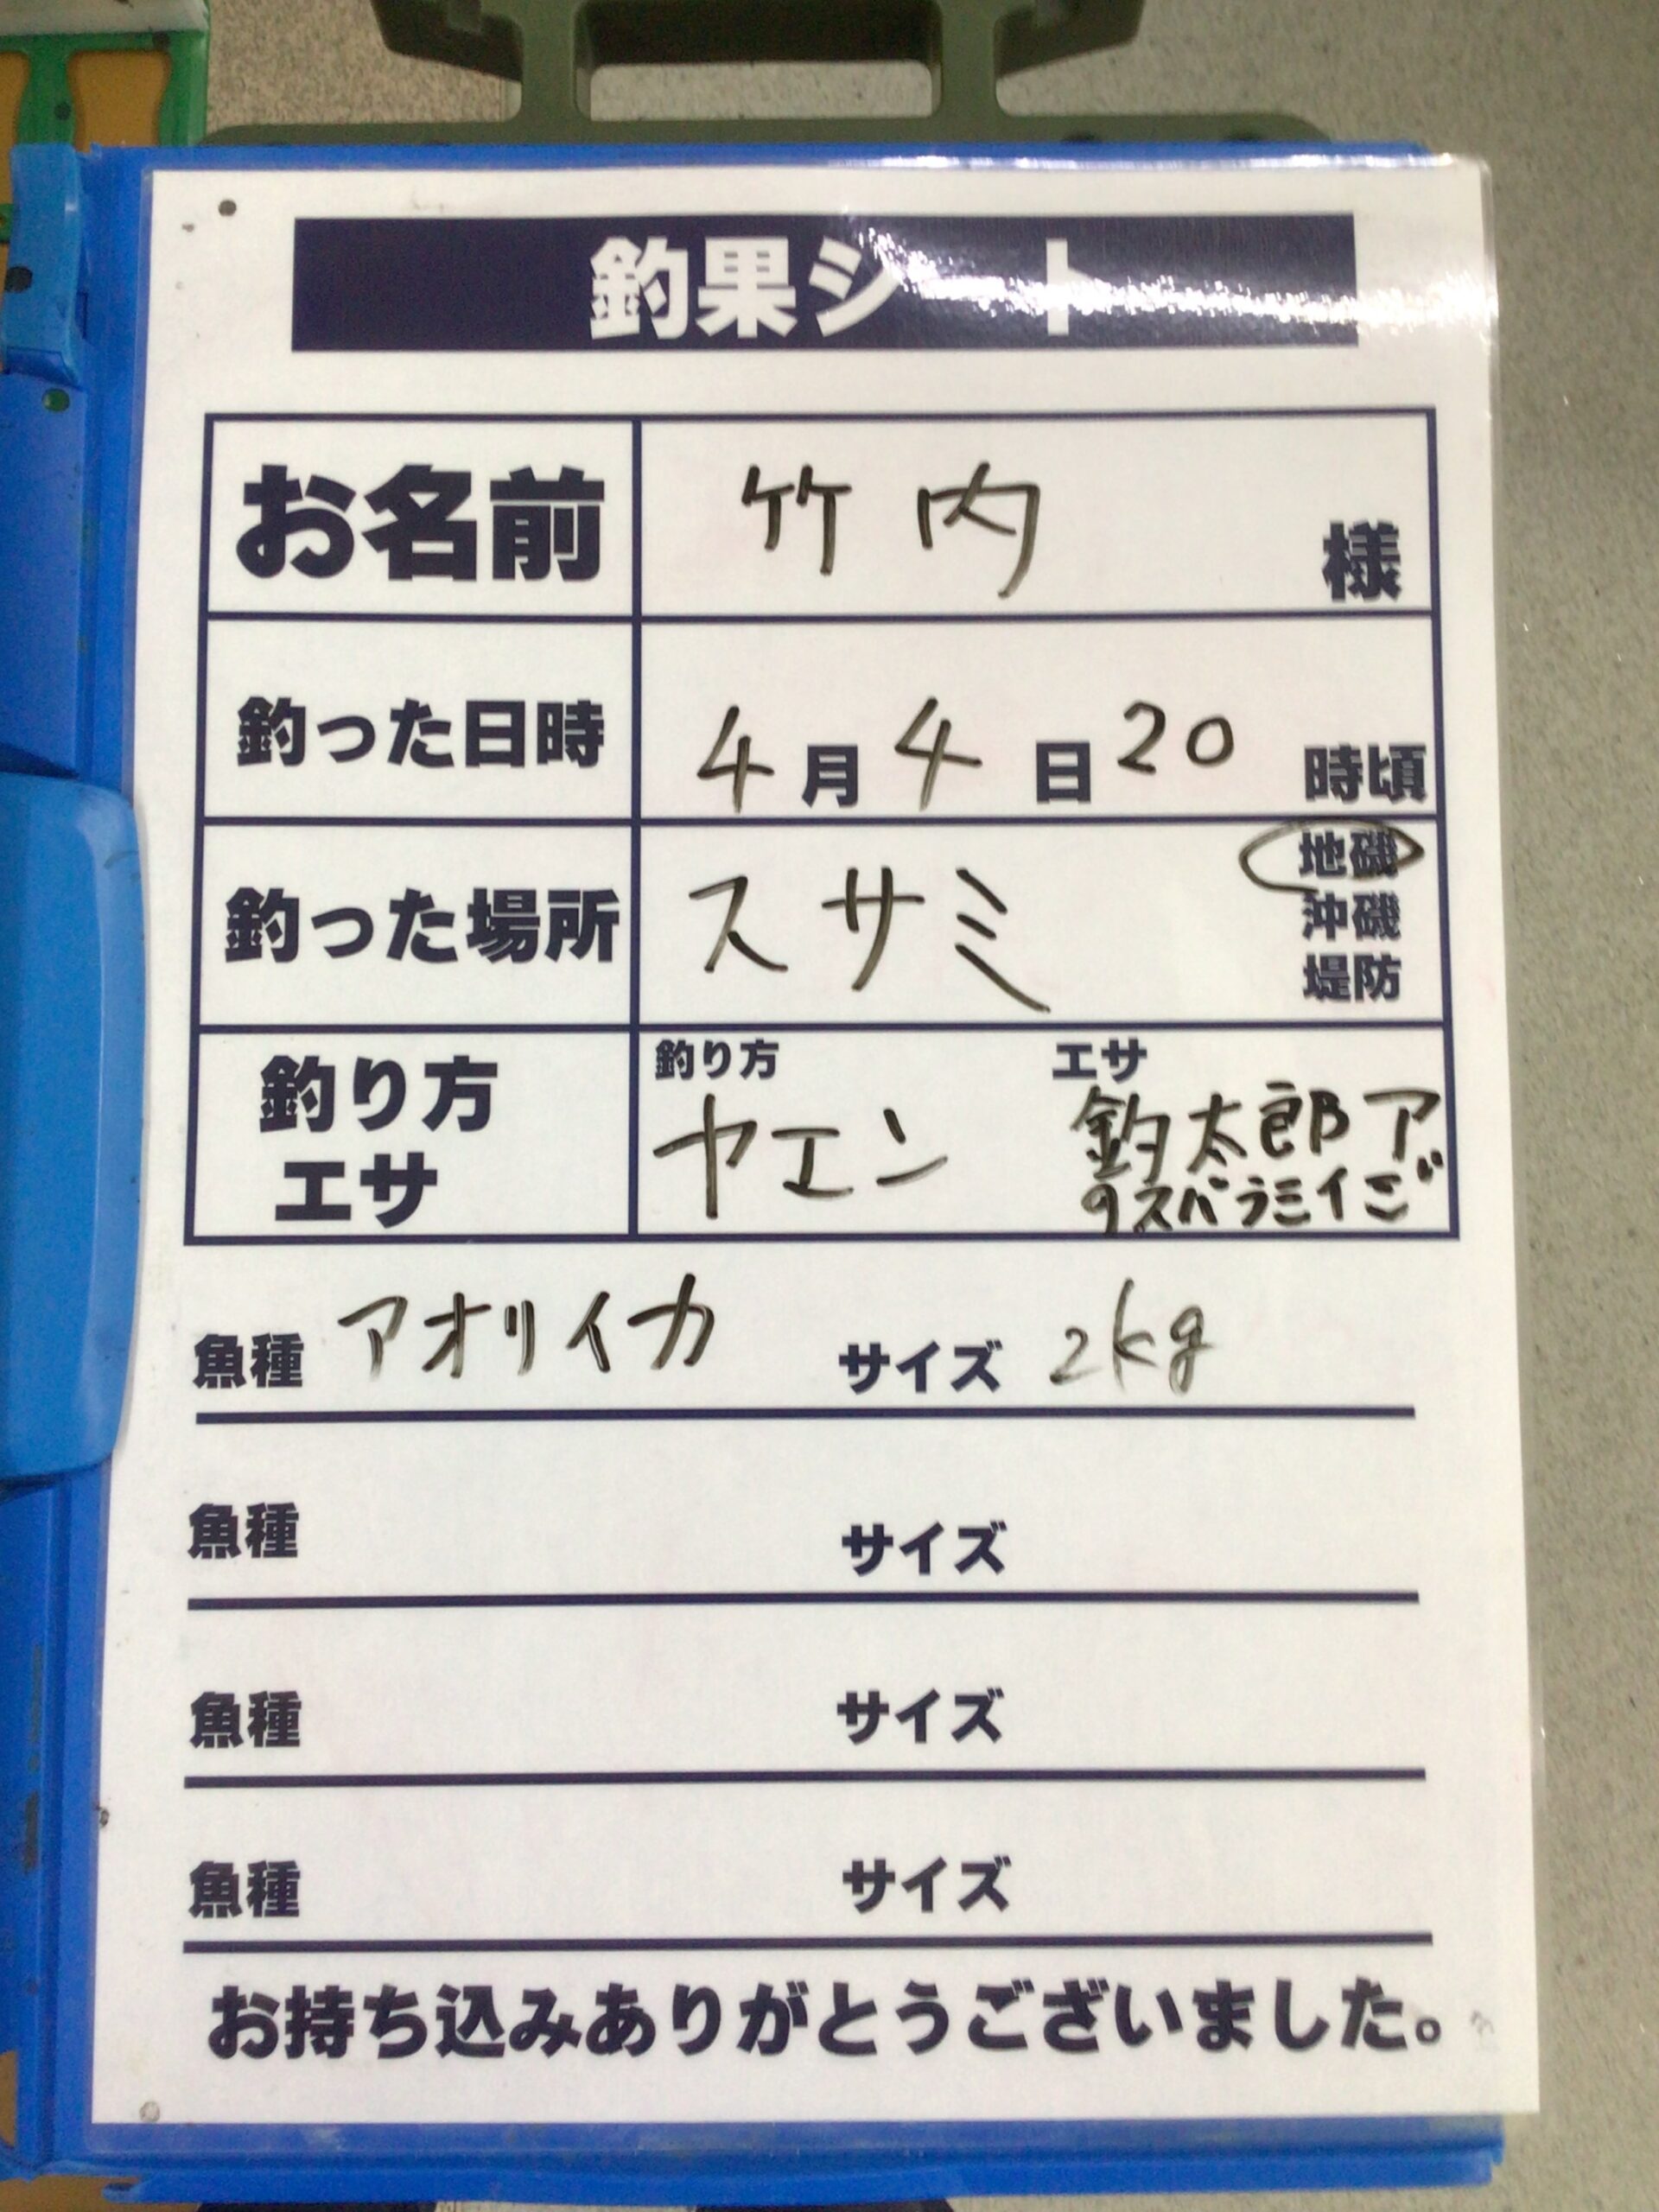 釣果シート
お名前 竹内 様
釣った日時 4月4日20時頃
釣った場所 スサミ 地磯
沖磯
堤防
釣り方 エサ
釣り方 ヤエン エサ 釣太郎ア
ジ
魚種 アオリイカ サイズ 2kg
魚種 サイズ
魚種 サイズ
魚種 サイズ
お持ち込みありがとうございました。